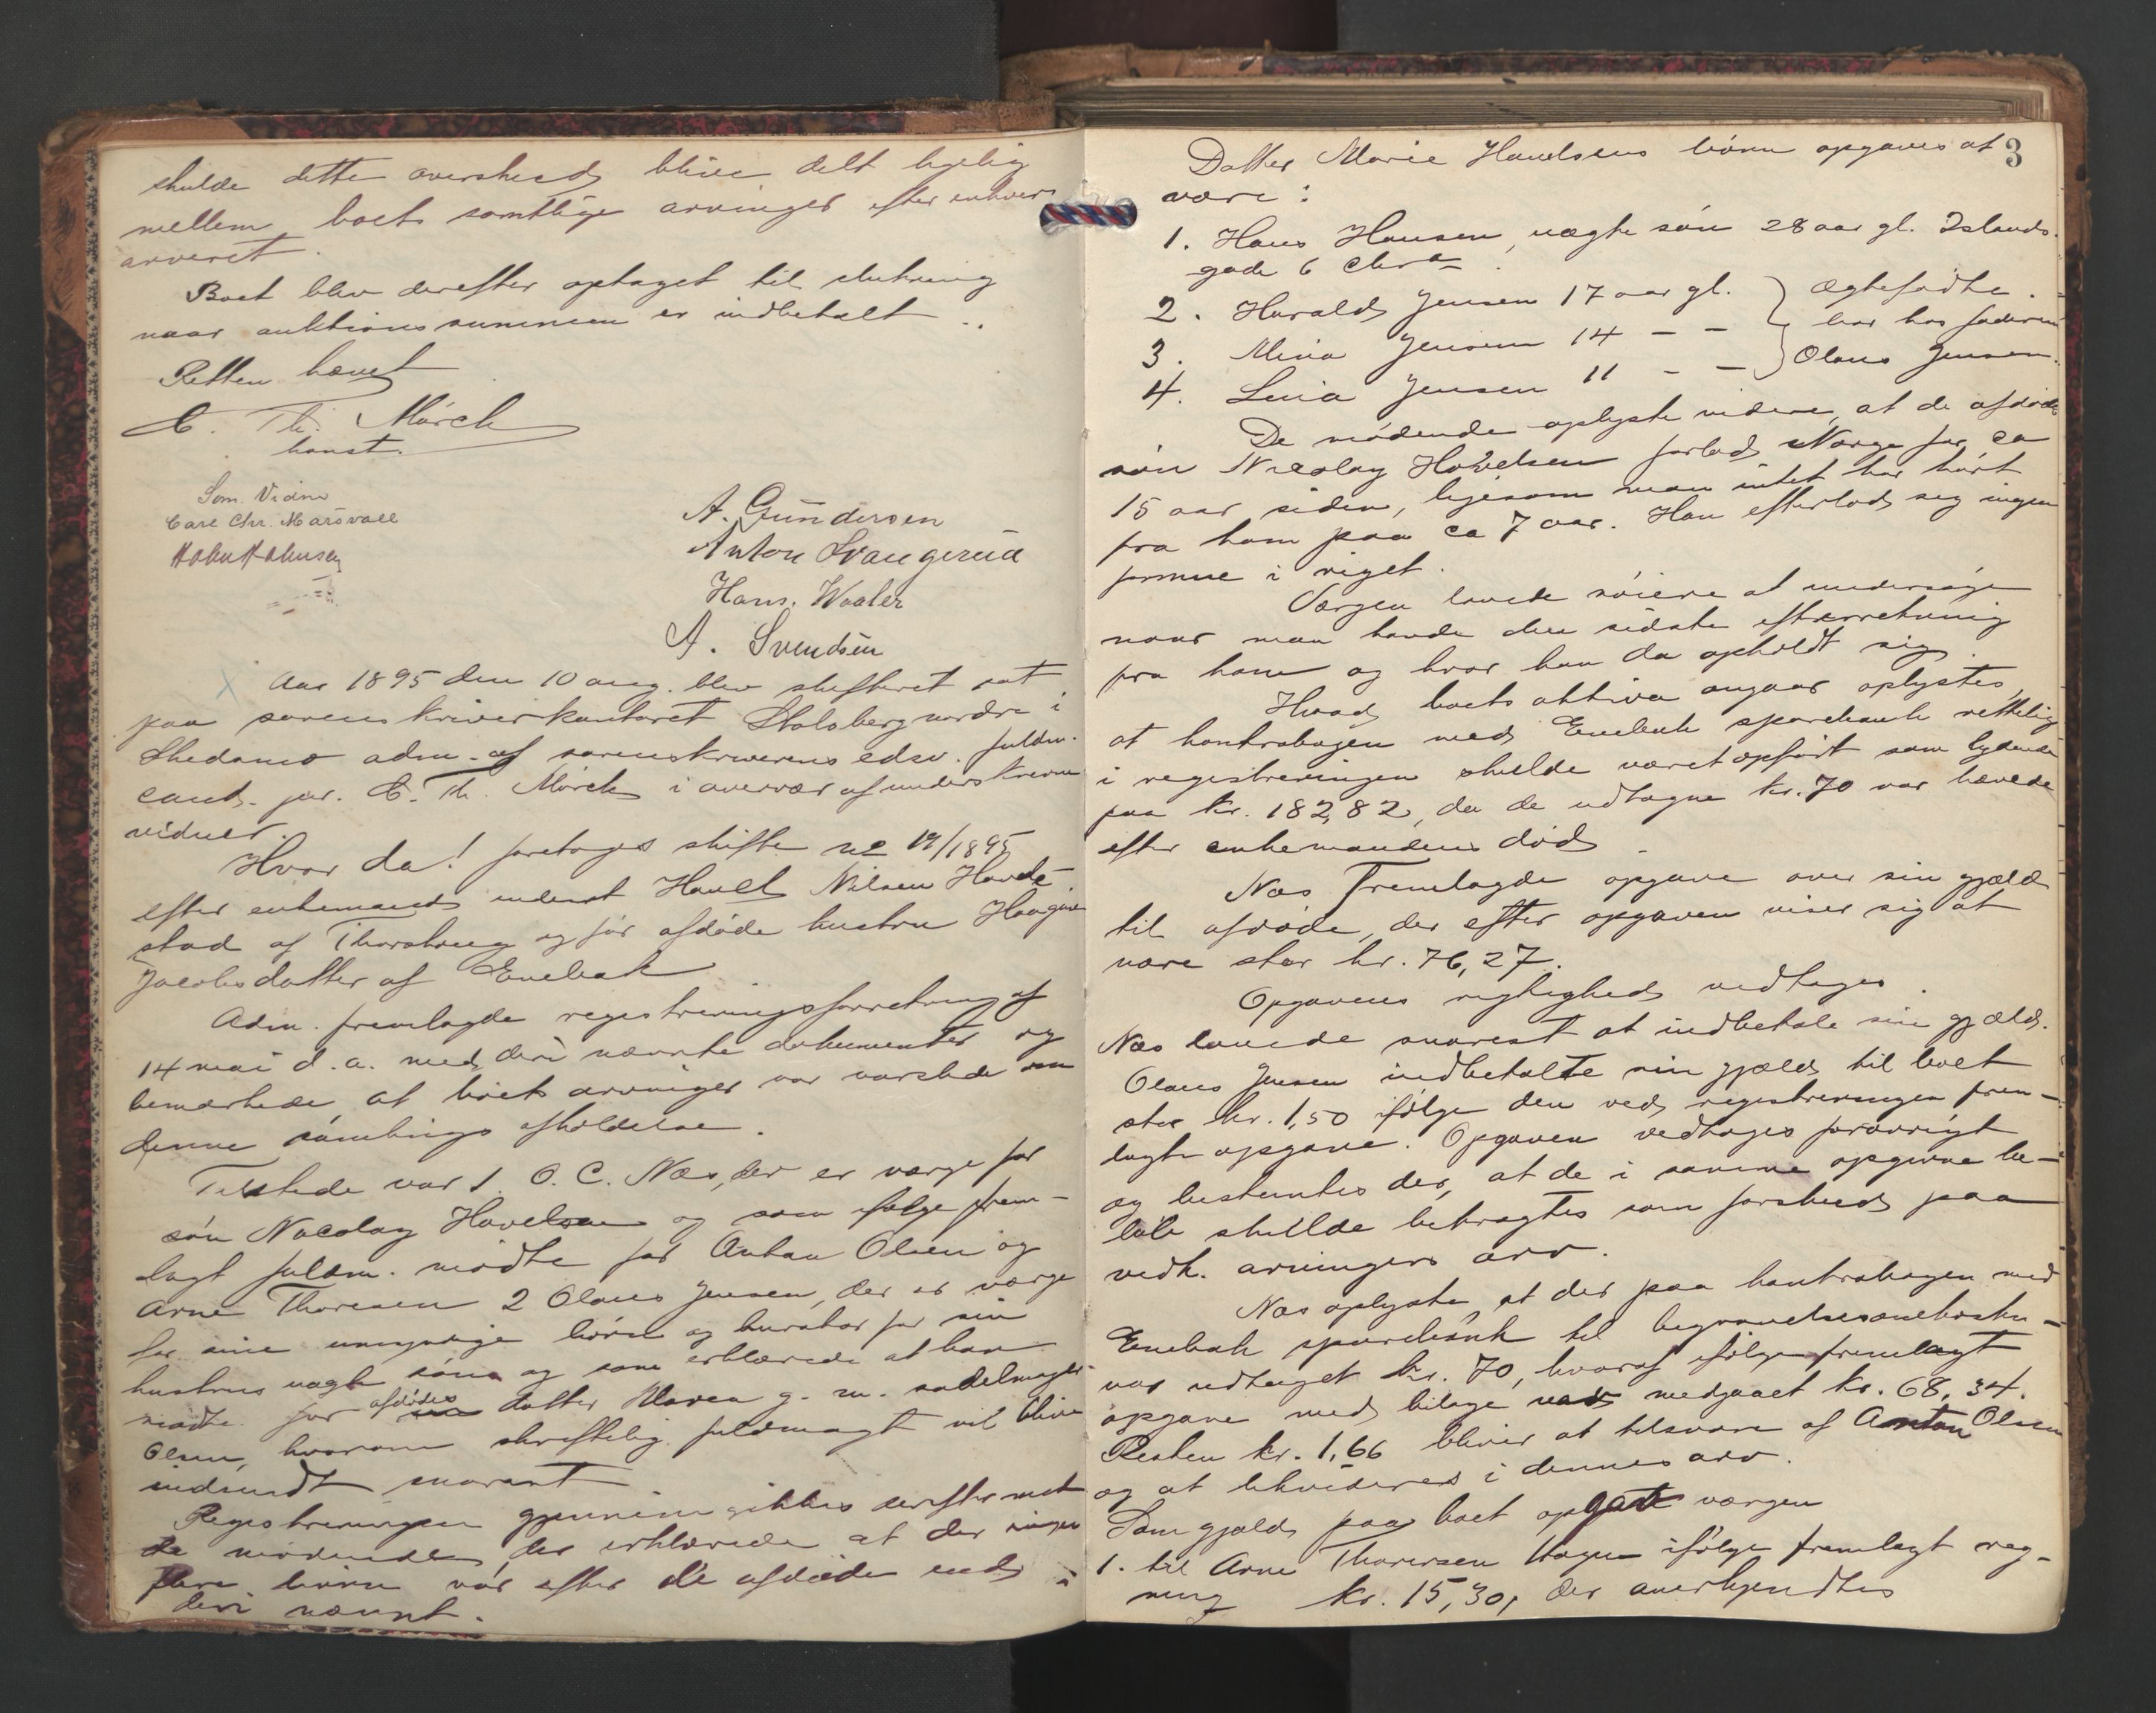 skulde dette overskud blive delt ligelig
mellem boets samtlige arvinger efter enhvers
arveret.
Boet blev derefter optaget til slutning
naar auktionssummen er indbetalt.
Retten hævet
C. Th. Mörch
const.
Som Vidne
Carl Chr. Marsvall
A. Gundersen
Anton Svangerud
Hans. Waaler
A. Svendsen
Aar 1895 den 10 aug. blev skifteret sat
paa sorenskriverkontoret Stalsberg nordre i
Skedsmo adm. af sorenskriverens edsv. fuldm.
cand. jur. C. Th. Mörch i overvær af underskrevne
vidner.
Hvor da! foretoges skifte no 19/1895
efter enkemand inderst Havel Nilsen Hovde-
stad af Thorstrug og før afdøde hustru
Jacobsdatter af Enebak
Adm. fremlagde registreringsforretning af
14 mai d. a. med deri nævnte dokumenter og
bemærkede, at boets arvinger var varslede om
denne samlings afholdelse.
Tilstede var 1. O. C. Næs, der er værge for
søn Nicolay Havelsen og som ifølge frem-
lagt fuldm. mødte for Anton Olsen og
Arne Thoresen 2 Olaus Jensen, der er værge
for sine umyndige børn og kurator for sin
hustrus uægte søn og som erklærede at han
mødte for afdødes datter Maren g. m. sadelmager
Olsen, hvorom skriftelig fuldmagt vil blive
indsendt snarest
Registreringen gjennemgikkes derefter med
de mødende, der erklærede at der ingen
flere børn var efter de afdøde end
deri nævnt.
3
Datter Marie Havelsens børn opgaves at
være:
1. Hans Hansen, uægte søn 28 aar gl. Islands-
gade 6 Chra
2. Harald Jensen 17 aar gl. } Ægtefødte.
3. Mina Jensen 14 - - } bor hos faderen
4. Lina Jensen 11 - - } Olaus Jensen.
De mødende oplyste videre, at de afdødes
søn Nicolay Havelsen forlod Norge for ca
15 aar siden, ligesom man intet har hørt
fra ham paa ca 7 aar. Han efterlod sig ingen
formue i riget.
Værgen lovede nøiere at undersøge
naar man havde den sidste efterretning
fra ham og hvor han da opholdt sig.
Hvad boets aktiva angaar oplystes
at kontrabogen med Enebak sparebank rettelig
i registreringen skulde været opført som lydende
paa kr. 182,82, da de udtagne kr. 70 var hævede
efter enkemandens død.
Næs fremlagde opgave over sin gjæld
til afdøde, der efter opgaven viser sig at
være stor kr. 76,27.
Opgavens rigtighed vedtages.
Næs lovede snarest at indbetale sin gjæld.
Olaus Jensen indbetalte sin gjæld til boet
stor kr. 1,50 ifølge den ved registreringen frem-
lagte opgave. Opgaven vedtoges forøvrigt
og bestemtes der, at de i samme opgivne be-
løb skulde betragtes som forskud paa
vedk. arvingers arv.
Næs oplyste, at der paa kontrabogen med
Enebak sparebank til begravelsesomkostn-
var udtaget kr. 70, hvoraf ifølge fremlagt
opgave med bilage var medgaaet kr. 68,34.
Resten kr. 1,66 bliver at tilsvare af Anton Olsen
og at likvideres i dennes arv.
Som gjæld paa boet opgav værgen
1. til Arne Thoresen Hagen ifølge fremlagt reg-
ning kr. 15,30, der anerkjendtes